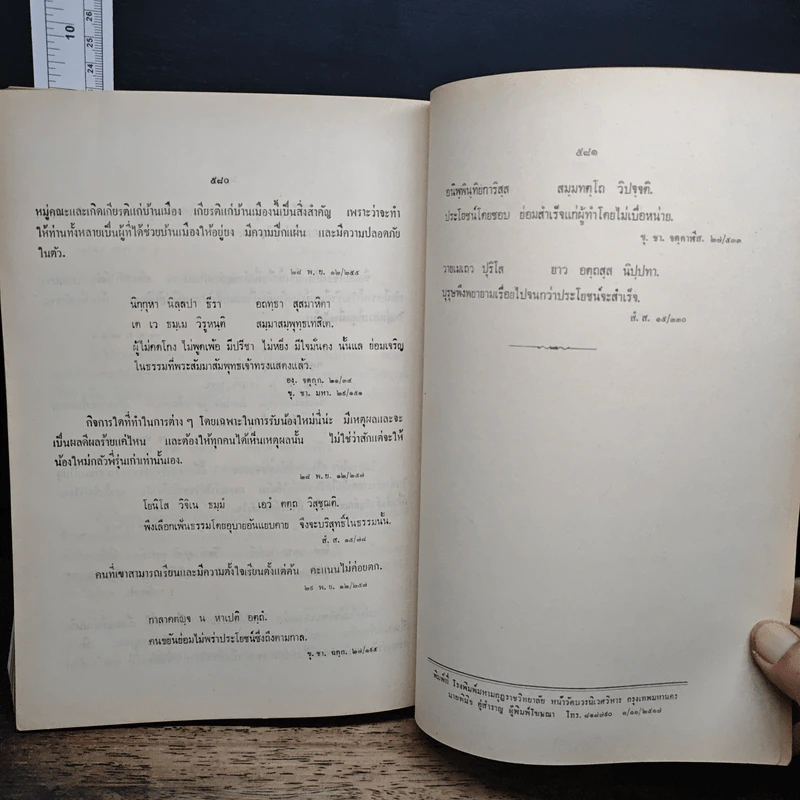 10
26
25
24
๕๘๐
หมู่คณะและเกิดเกียรติแก่บ้านเมือง เกียรติแก่บ้านเมืองนี้เป็นสิ่งสำคัญ เพราะว่าจะทำ
ให้ท่านทั้งหลายเป็นผู้ที่ได้ช่วยบ้านเมืองให้อยู่ยง มีความปึกแผ่น และมีความปลอดภัย
ในตัว.
๒๘ พ.ย. ๑๒/๒๕๕
นิกฺกุหา นิลฺลปา ธีรา อถทฺธา สุสมาหิตา
เต เว ธมฺเม วิรูหนฺติ สมฺมาสมฺพุทฺธเทสิเต.
ผู้ไม่คดโกง ไม่พูดเพ้อ มีปรีชา ไม่หยิ่ง มีใจมั่นคง นั้นแล ย่อมเจริญ
ในธรรมที่พระสัมมาสัมพุทธเจ้าทรงแสดงแล้ว.
องฺ. จตุกฺก. ๒๑/๓๔
ขุ. ชา. มหา. ๒๘/๑๕๑
กิจการใดที่ทำในการต่าง ๆ โดยเฉพาะในการรับน้องใหม่นี่น่ะ มีเหตุผลและจะ
เป็นผลดีผลร้ายแค่ไหน และต้องให้ทุกคนได้เห็นเหตุผลนั้น ไม่ใช่ว่าสักแต่จะให้
น้องใหม่กลัวพี่รุ่นเก่าเท่านั้นเอง.
๒๘ พ.ย. ๑๒/๒๕๗
โยนิโส วิจิเน ธมฺมํ เอวํ ตตฺถ วิสุชฺฌติ.
พึงเลือกเฟ้นธรรมโดยอุบายอันแยบคาย จึงจะบริสุทธิ์ในธรรมนั้น.
สํ. ส. ๑๕/๗๘
คนที่เขาสามารถเรียนและมีความตั้งใจเรียนตั้งแต่ต้น คะแนนไม่ค่อยตก.
๒๘ พ.ย. ๑๒/๒๕๗
กาลาคตญฺจ น หาเปติ อตฺถํ.
คนขยันย่อมไม่พร่าประโยชน์ซึ่งถึงตามกาล.
ขุ. ชา.
๕๘๑
อนิพฺพินฺทิยการิสฺส สมฺมทตฺโถ วิปจฺจติ.
ประโยชน์โดยชอบ ย่อมสำเร็จแก่ผู้ทำโดยไม่เบื่อหน่าย.
ขุ. ชา. จตฺตาฬีส. ๒๗/๕๓๓
วายเมเถว ปุริโส ยาว อตฺถสฺส นิปฺปทา.
บุรุษพึงพยายามเรื่อยไปจนกว่าประโยชน์จะสำเร็จ.
สํ. ส. ๑๕/๓๓๐
พิมพ์ที่ โรงพิมพ์มหามกุฏราชวิทยาลัย หน้าวัดบวรนิเวศวิหาร กรุงเทพมหานคร
ผู้พิมพ์โฆษณา โทร.